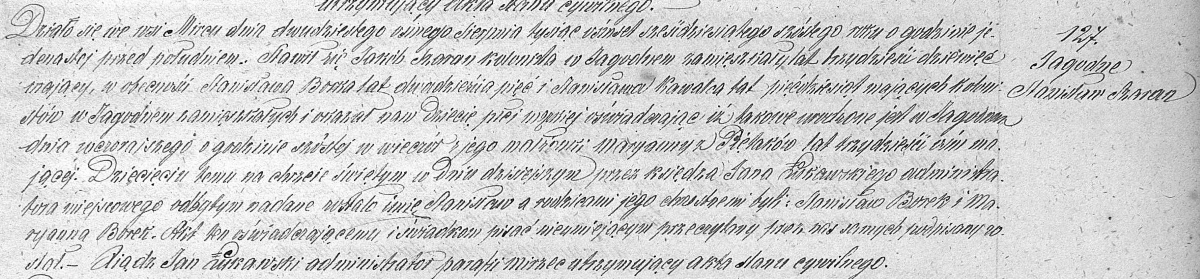 utrzymujący akta stanu cywilnego. –
Działo się we wsi Mircu dnia dwudziestego ósmego Sierpnia tysiąc ósmset sześdziesiątego szóstego roku o godzinie je-
denastej przed południem. Stawił się Jakób Szaran kolonista w Jagodnem zamieszkały lat trzydzieści dziewięć
mający, w obecności Stanisława Borka lat dwadzieścia pięć i Stanisława Kowalca lat pięćdziesiat mających kolonis-
tów w Jagodnem zamieszkałych i okazał nam dziecię płci męzkiej oświadczając iż takowe urodzone jest w Jagodnem
dnia wczorajszego o godzinie szóstej w wieczór z jego małżonki Maryanny z Bętaków lat trzydzieści ośm ma-
jącej. Dziecięciu temu na chrzcie świętym w dniu dzisiejszym przez księdza Jana Żukawskiego administra-
tora miejscowego odbytym nadane zostało imię Stanisław a rodzicami jego chrzestnemi byli: Stanisław Borek i Ma-
ryanna Borek. Akt ten oświadczającemu i świadkom pisać nieumiejącym przeczytany przez nas samych podpisany zo-
stał. – Xiądz Jan Żukawski administrator parafii Mirzec utrzymujący akta stanu cywilnego.
127.
Jagodne
Stanisław Szaran